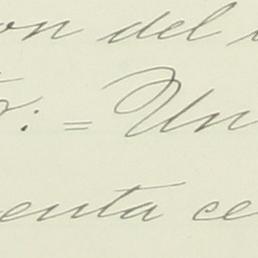 on del
: = Un
enta ce